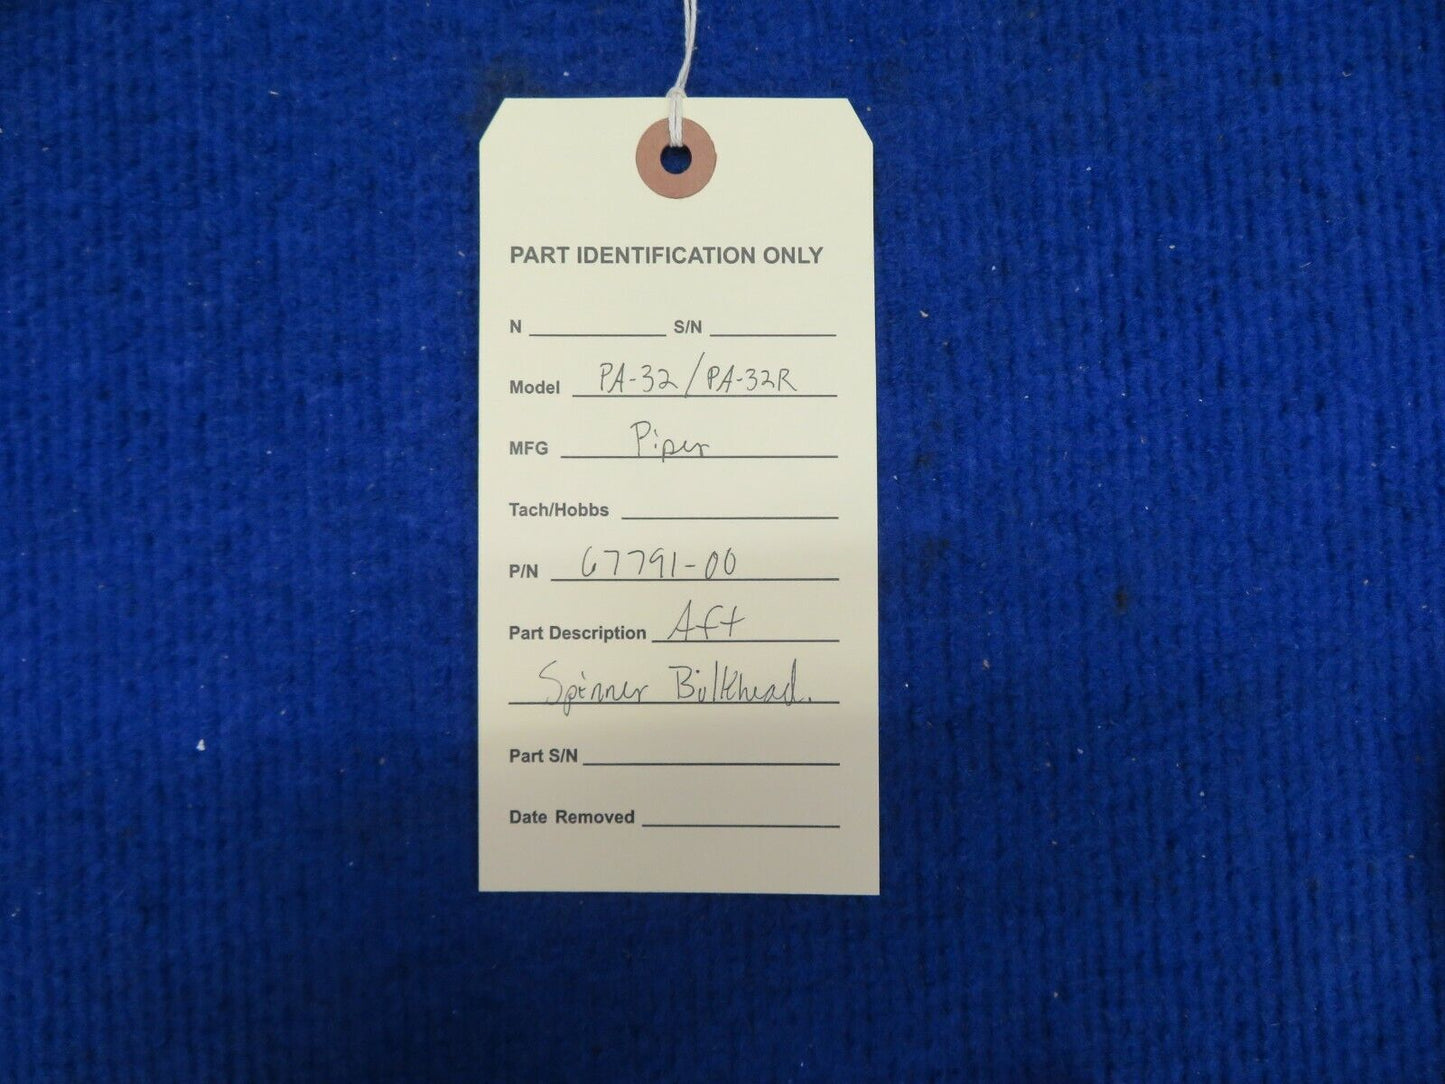 PART IDENTIFICATION ONLY
N S/N
Model PA-32/PA-32R
MFG Piper
Tach/Hobbs
P/N 67791-00
Part Description Aft
Spinner Bulkhead.
Part S/N
Date Removed